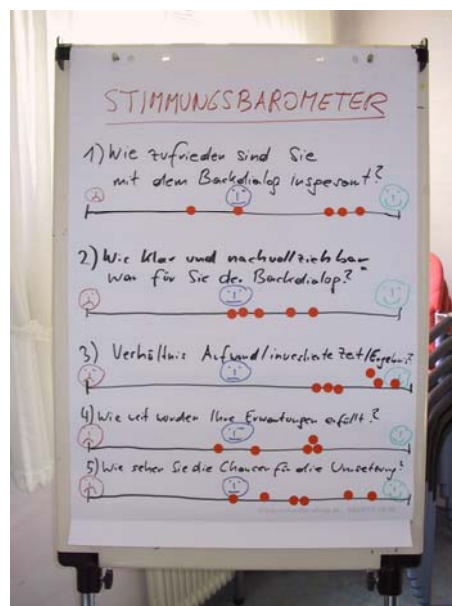 STIMMUNGSBAROMETER
1) Wie zufrieden sind Sie
mit dem Backdialog insgesamt?
2) Wie klar und nachvollziehbar
war für Sie der Backdialog?
3) Verhältnis Aufwand/investierte Zeit/Ergebnis?
4) Wie weit wurden Ihre Erwartungen erfüllt?
5) Wie sehen Sie die Chancen für die Umsetzung?